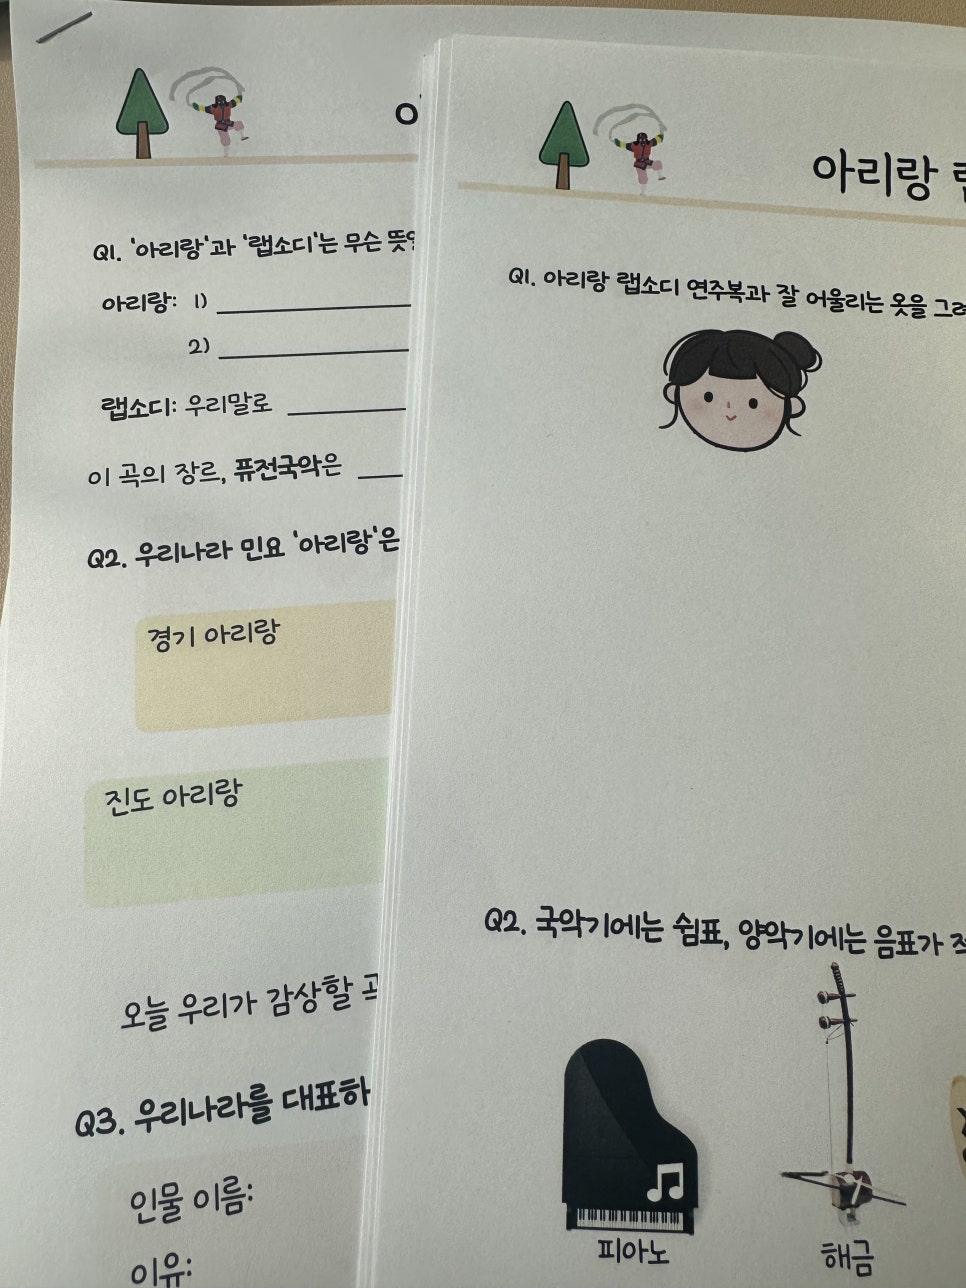 Q1. '아리랑'과 '랩소디'는 무슨
아리랑: 1)
2)
랩소디: 우리말로
이 곡의 장르, 퓨전국악은
Q2. 우리나라 민요 '아리랑'은
경기 아리랑
진도 아리랑
오늘 우리가 감상할
Q3. 우리나라를 대표하
인물 이름:
이유:
아리랑
Q1. 아리랑 랩소디 연주복과 잘 어울리는 옷을
Q2. 국악기에는 쉼표, 양악기에는 음표가
피아노
해금